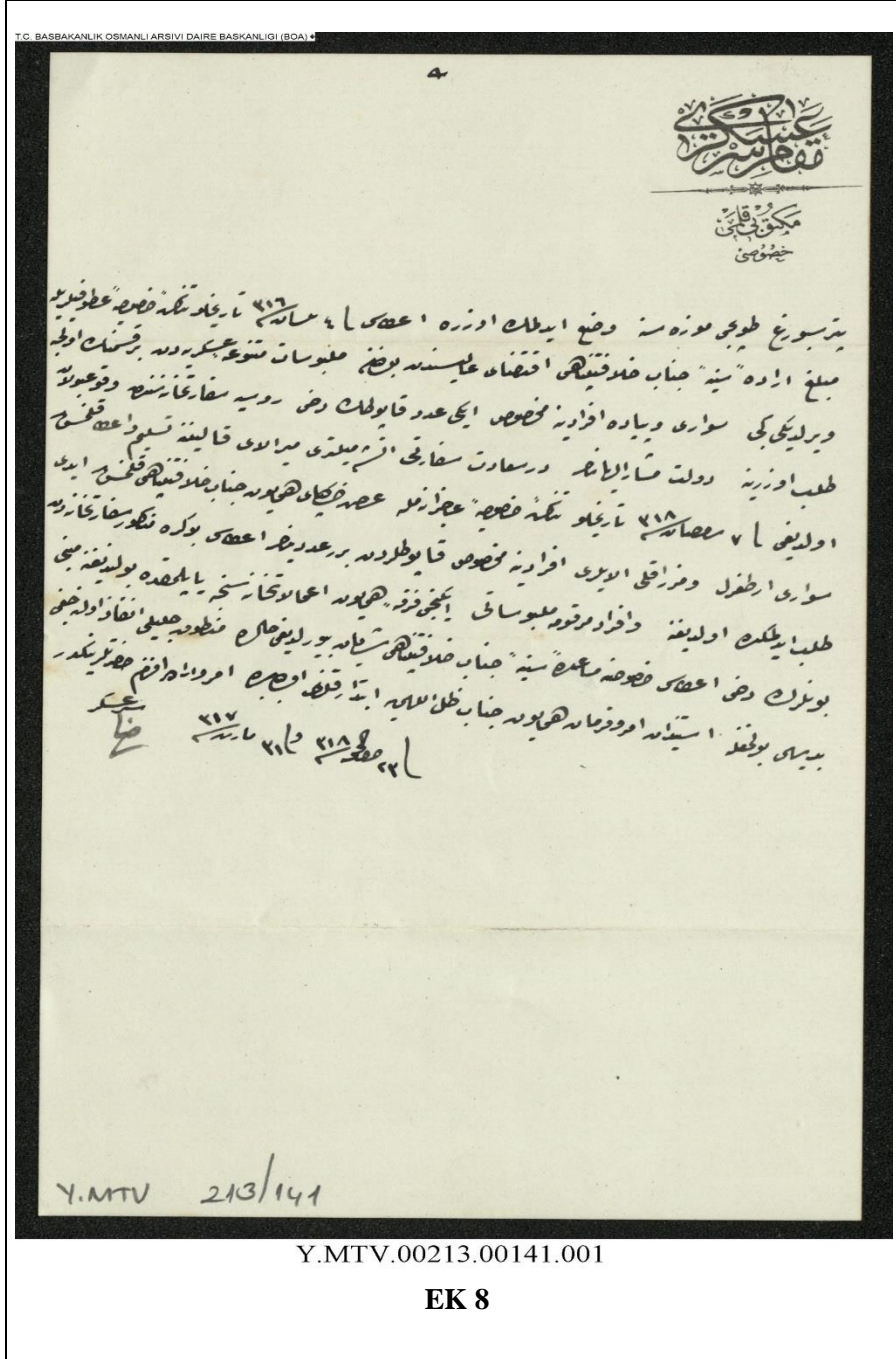 T.C. BASBAKANLIK OSMANLI ARSIVI DAIRE BASKANLIGI (BOA)
مقام سر عسكرى
مكتوبى قلمى
خصوصى
پترسبورغ طوپجى موزه سنه وضع ايدلمك اوزره اعطاسى ٤ نيسان ٣١٦ تاريخلو تذكرۀ خصوصيۀ
مبلغ ارادۀ سنيۀ جناب خلافتپناهى اقتضاى عاليسندن بعض ملبوسات متنوعۀ عسكريه دن بر قسمنك اولجه
ويرلديكى كبى سوارى وپياده افرادينه مخصوص ايكى عدد قاپوطك دخى روسيه سفارتخانه سندن وقوعبولان
طلب اوزرينه دولت مشار اليهانك درسعادت سفارتى اتشه ميليترى ميرالاى قالينه تسليم واعطا قلنمش
اولديغى ٧ رمضان ٣١٨ تاريخلو تذكرۀ خصوصيۀ عاجزانه مله عرض خاكپاى همايون جناب خلافتپناهى قلنمش ايدى
سوارى ارطغرل ومزراقلى الايلرى افرادينه مخصوص قاپوطلردن برر عددينك اعطاسى بو كره مذكور سفارتخانه دن
طلب ايدلمكده اولديغنه وافراد مرقومه ملبوساتى ايكنجى فرقۀ همايون اعمالاتخانه سنجه ياپلمقده بولنديغنه مبنى
بونلرك دخى اعطاسى خصوصنه مساعدۀ سنيۀ جناب خلافتپناهى شايان بيورلديغى حالده منطوق جليلى انفاذ اولنه جغى
بديهى بولنمغله استيذان امر وفرمان همايون جناب ظل اللهى ابتدار قلندى اولبابده امر واراده افندم حضرتلرينكدر
٢٣ ٣١٨ ٣١ مارت ٣١٧
سر عسكر
رضا
Y.MTV 213/141
Y.MTV.00213.00141.001
EK 8